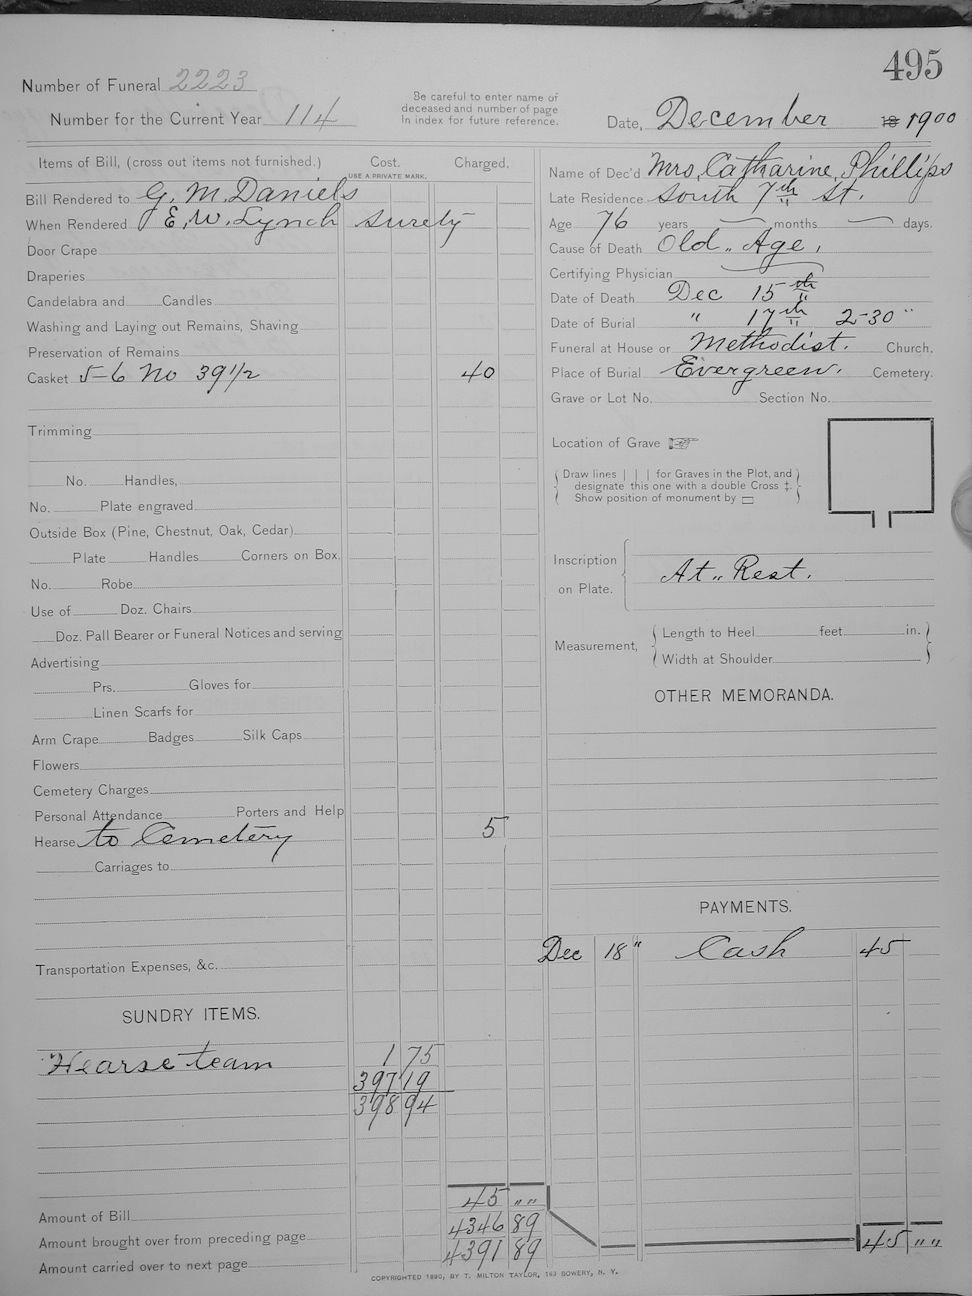 495
Number of Funeral 2223
Number for the Current Year 114
Be careful to enter name of
deceased and number of page
In index for future reference.
Date, December 18 1900
Items of Bill, (cross out items not furnished.) Cost. Charged.
USE A PRIVATE MARK.
Bill Rendered to G. M. Daniels
When Rendered E. W. Lynch surety
Door Crape
Draperies
Candelabra and Candles
Washing and Laying out Remains, Shaving
Preservation of Remains
Casket 5-6 No 39 1/2 40
Trimming
No. Handles,
No. Plate engraved
Outside Box (Pine, Chestnut, Oak, Cedar)
Plate Handles Corners on Box.
No. Robe
Use of Doz. Chairs
Doz. Pall Bearer or Funeral Notices and serving
Advertising
Prs. Gloves for
Linen Scarfs for
Arm Crape Badges Silk Caps
Flowers
Cemetery Charges
Personal Attendance Porters and Help
Hearse to Cemetery 5
Carriages to
Transportation Expenses, &c.
SUNDRY ITEMS.
Hearse team 1 75
397 19
398 94
45 " "
Amount of Bill
4346 89
Amount brought over from preceding page
4391 89
Amount carried over to next page
Name of Dec'd Mrs, Catharine, Phillips
Late Residence South 7th St.
Age 76 years months days.
Cause of Death Old " Age,
Certifying Physician
Date of Death Dec 15th
Date of Burial " 17th 2-30 "
Funeral at House or Methodist. Church.
Place of Burial Evergreen. Cemetery.
Grave or Lot No. Section No.
Location of Grave ☞
Draw lines | | | for Graves in the Plot, and
designate this one with a double Cross ‡.
Show position of monument by ▭
Inscription
on Plate.
At " Rest.
Measurement, Length to Heel feet in.
Width at Shoulder
OTHER MEMORANDA.
PAYMENTS.
Dec 18" Cash 45
45 " "
COPYRIGHTED 1890, BY T. MILTON TAYLOR, 163 BOWERY, N. Y.